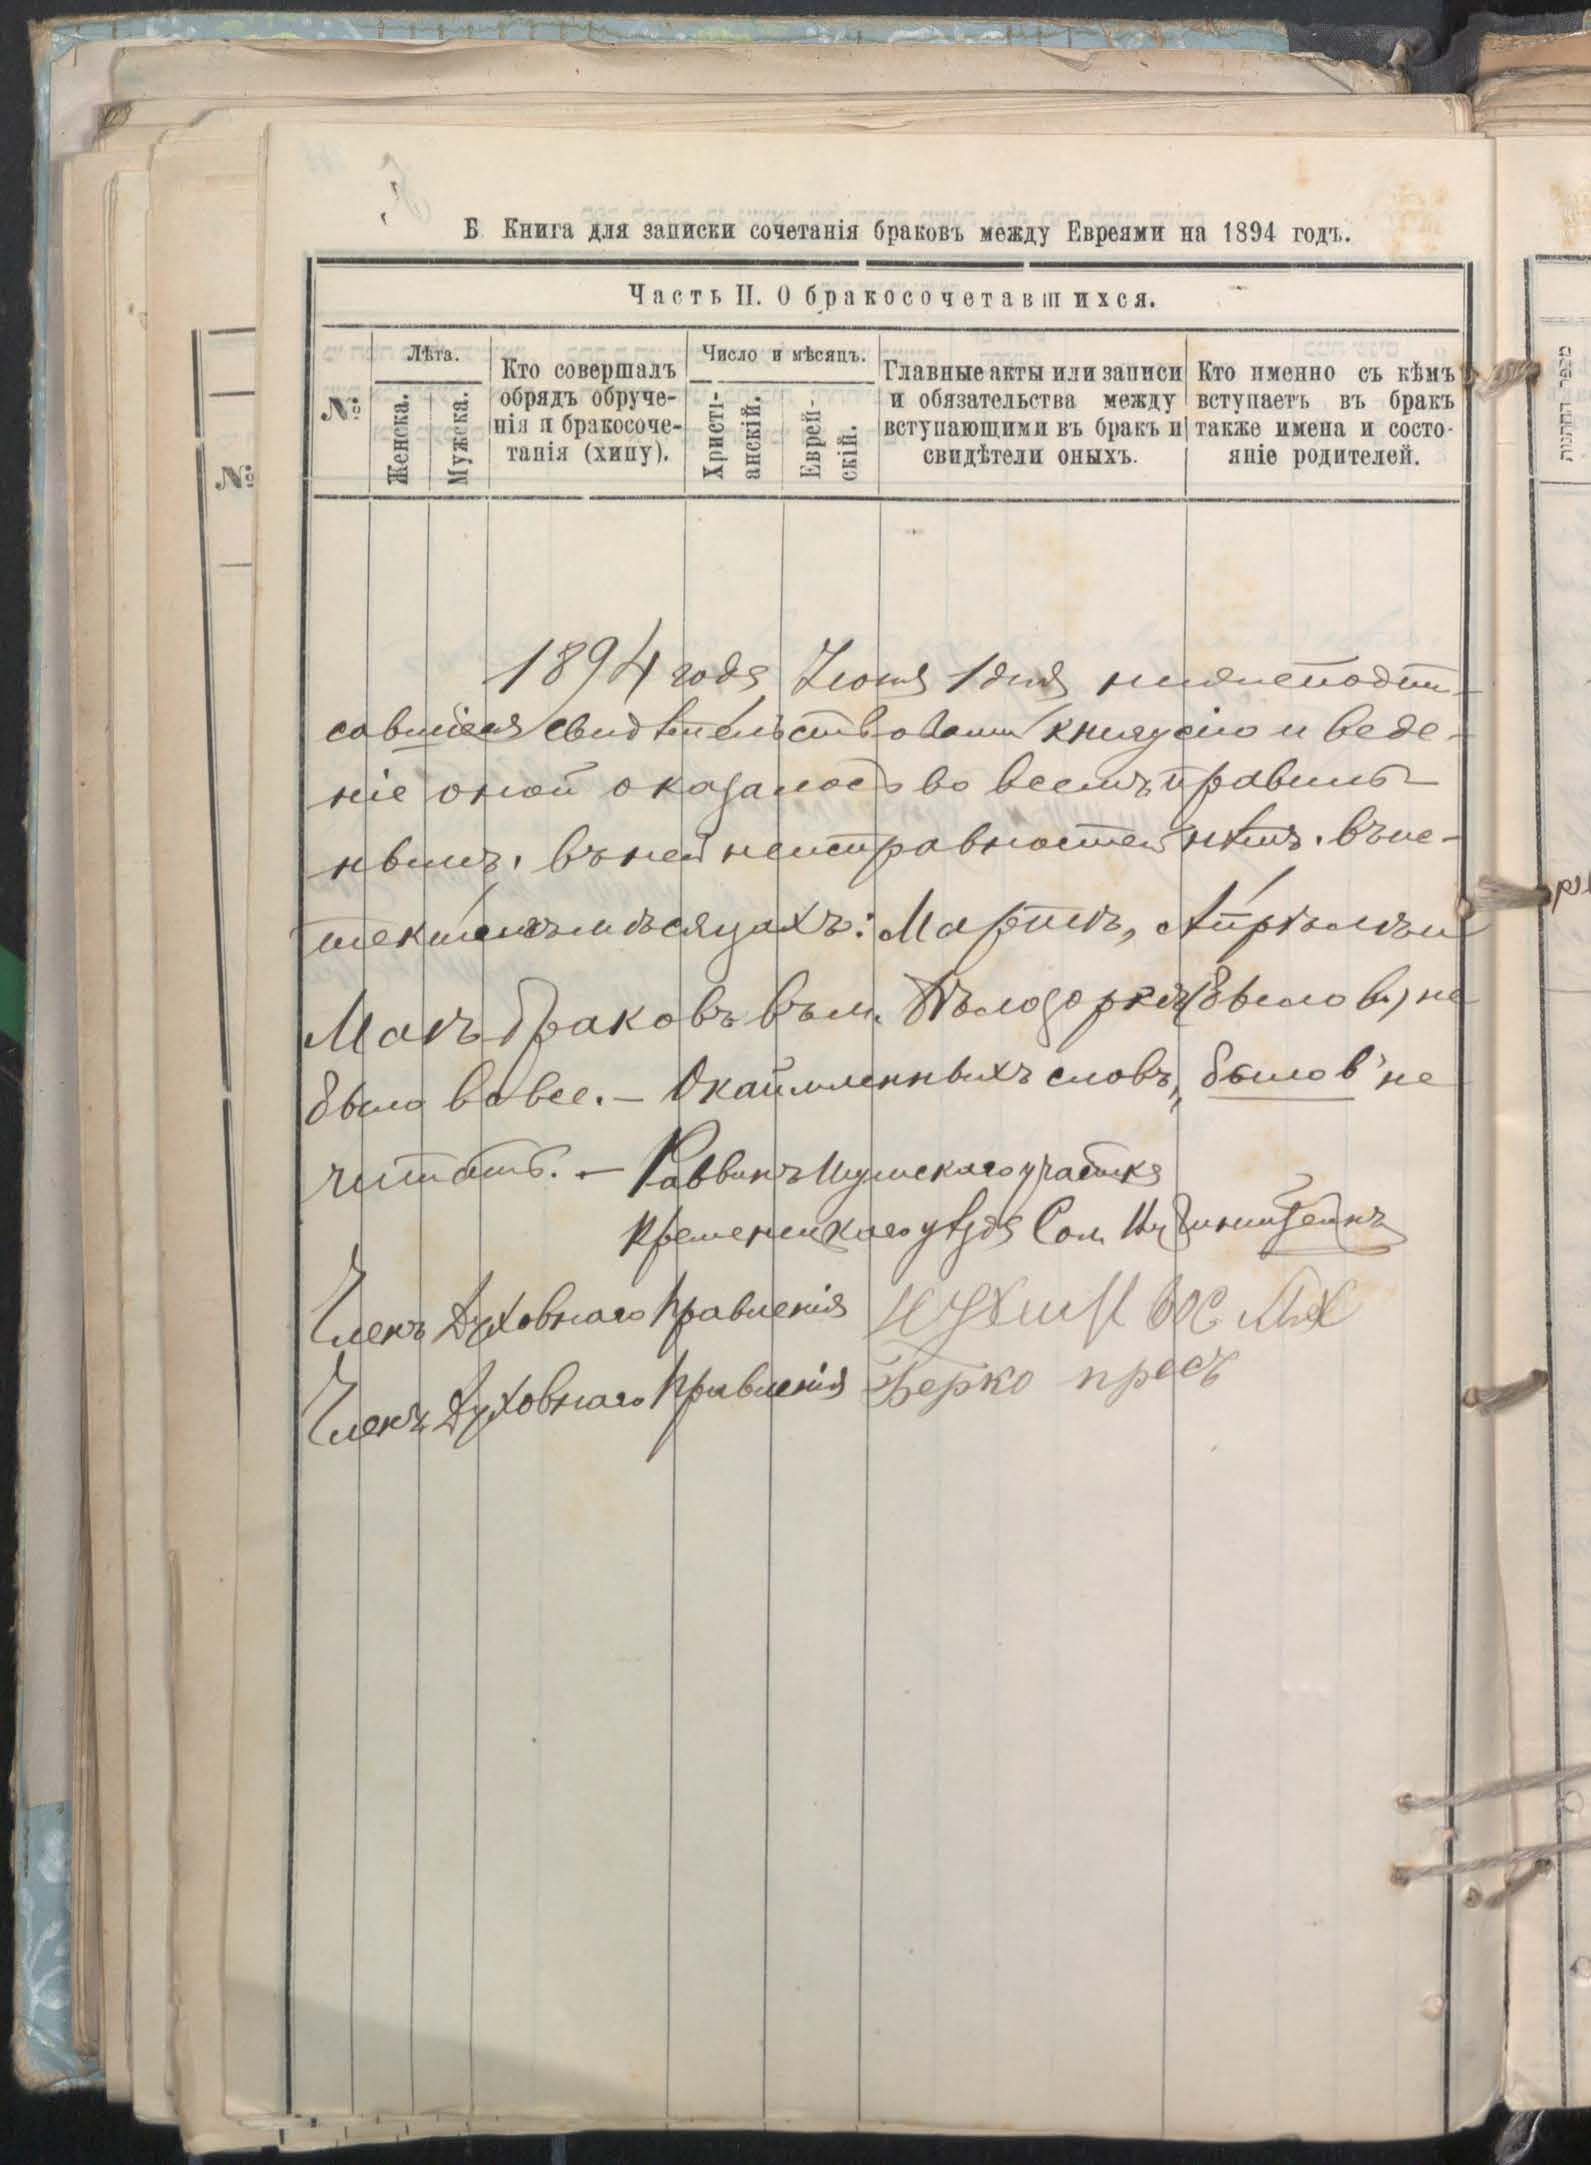 Б Книга для записки сочетанія браковъ между Евреями на 1894 годъ.
Часть II. О бракосочетавшихся.
№
Лѣта.
Женска.
Мужска.
Кто совершалъ
обрядъ обруче-
нія и бракосоче-
танія (хипу).
Число и мѣсяцъ.
Христі-
анскій.
Еврей-
скій.
Главные акты или записи
и обязательства между
вступающими въ бракъ и
свидѣтели оныхъ.
Кто именно съ кѣмъ
вступаетъ въ бракъ
также имена и состо-
яніе родителей.
№
1894 года Іюня 1 дня нижеподпи-
савшіеся свидѣтельствовали книгу сію и веде-
ніе оной оказалось во всемъ правиль-
нымъ. въ ней неисправностей нѣтъ. въ ис-
текшихъ мѣсяцахъ: Мартѣ, Апрѣлѣ и
Маѣ браковъ въ м. Бѣлозоркѣ (было в) не
было вовсе. — Окаймленныхъ словъ „было в" не
читать. — Раввинъ Шумскаго участка
Кременецкаго уѣзда Сол.
Членъ Духовнаго Правленія
Членъ Духовнаго Правленія Берко пресъ